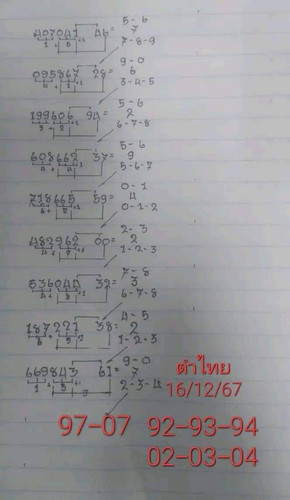 5-6
407041 46= 7
1 + 5 +1
7-8-9
9-0
095867 28= 6
4 + 1 +1
3-4-5
5-6
199606 94= 2
9 + 2
6-7-8
5-6
608662 37= 9
5-6-7
0-1
718665 59= 4
0-1-2
2-3
482962 00= 2
1-2-3
7-8
536044 32= 3
6-7-8
4-5
187221 38= 2
1-2-3
9-0
669843 61= 7
1 + 5 +1
2-3-4
ตำไทย
16/12/67
97-07 92-93-94
02-03-04